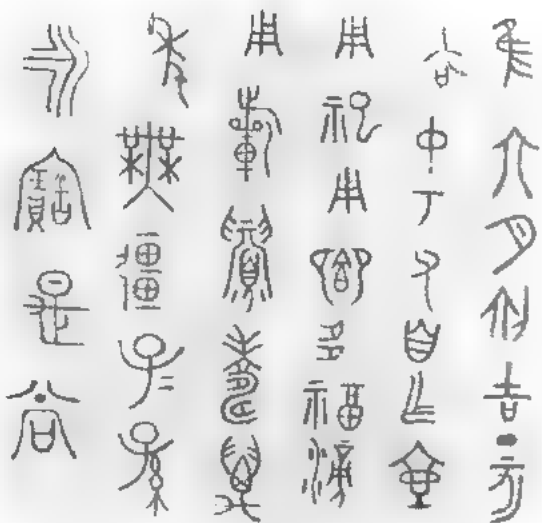 隹六月初吉丁亥
召中丂父自乍壺
用祀用鄉多福滂
用蘄眉壽萬
年無疆子=孫
永寶是尚